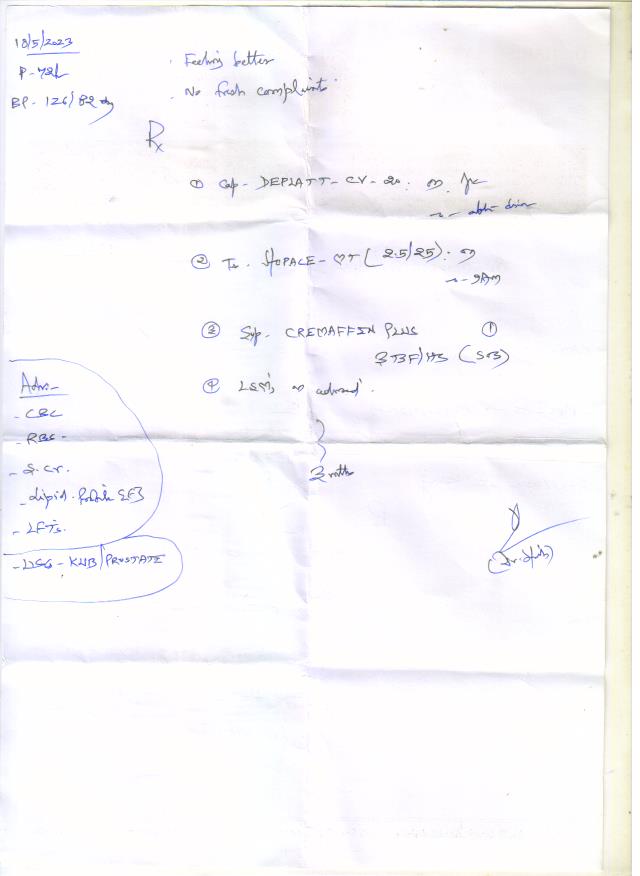 18/5/2023
P - 72/
BP - 126/82
. Feeling better
. No fresh complaints
Rx
① Cap - DEPLATT - CV - 20 :
② Tb. STOPACE - MT (2.5/25) :
9AM
③ Syp. CREMAFFIN PLUS ①
3 TBF/HS (SOS)
④ LSM, as advised.
3 mths
Adv -
- CBC
- RBS -
- S. Cr.
- Lipid. Profile
- LFTs.
- USG - KUB/PROSTATE